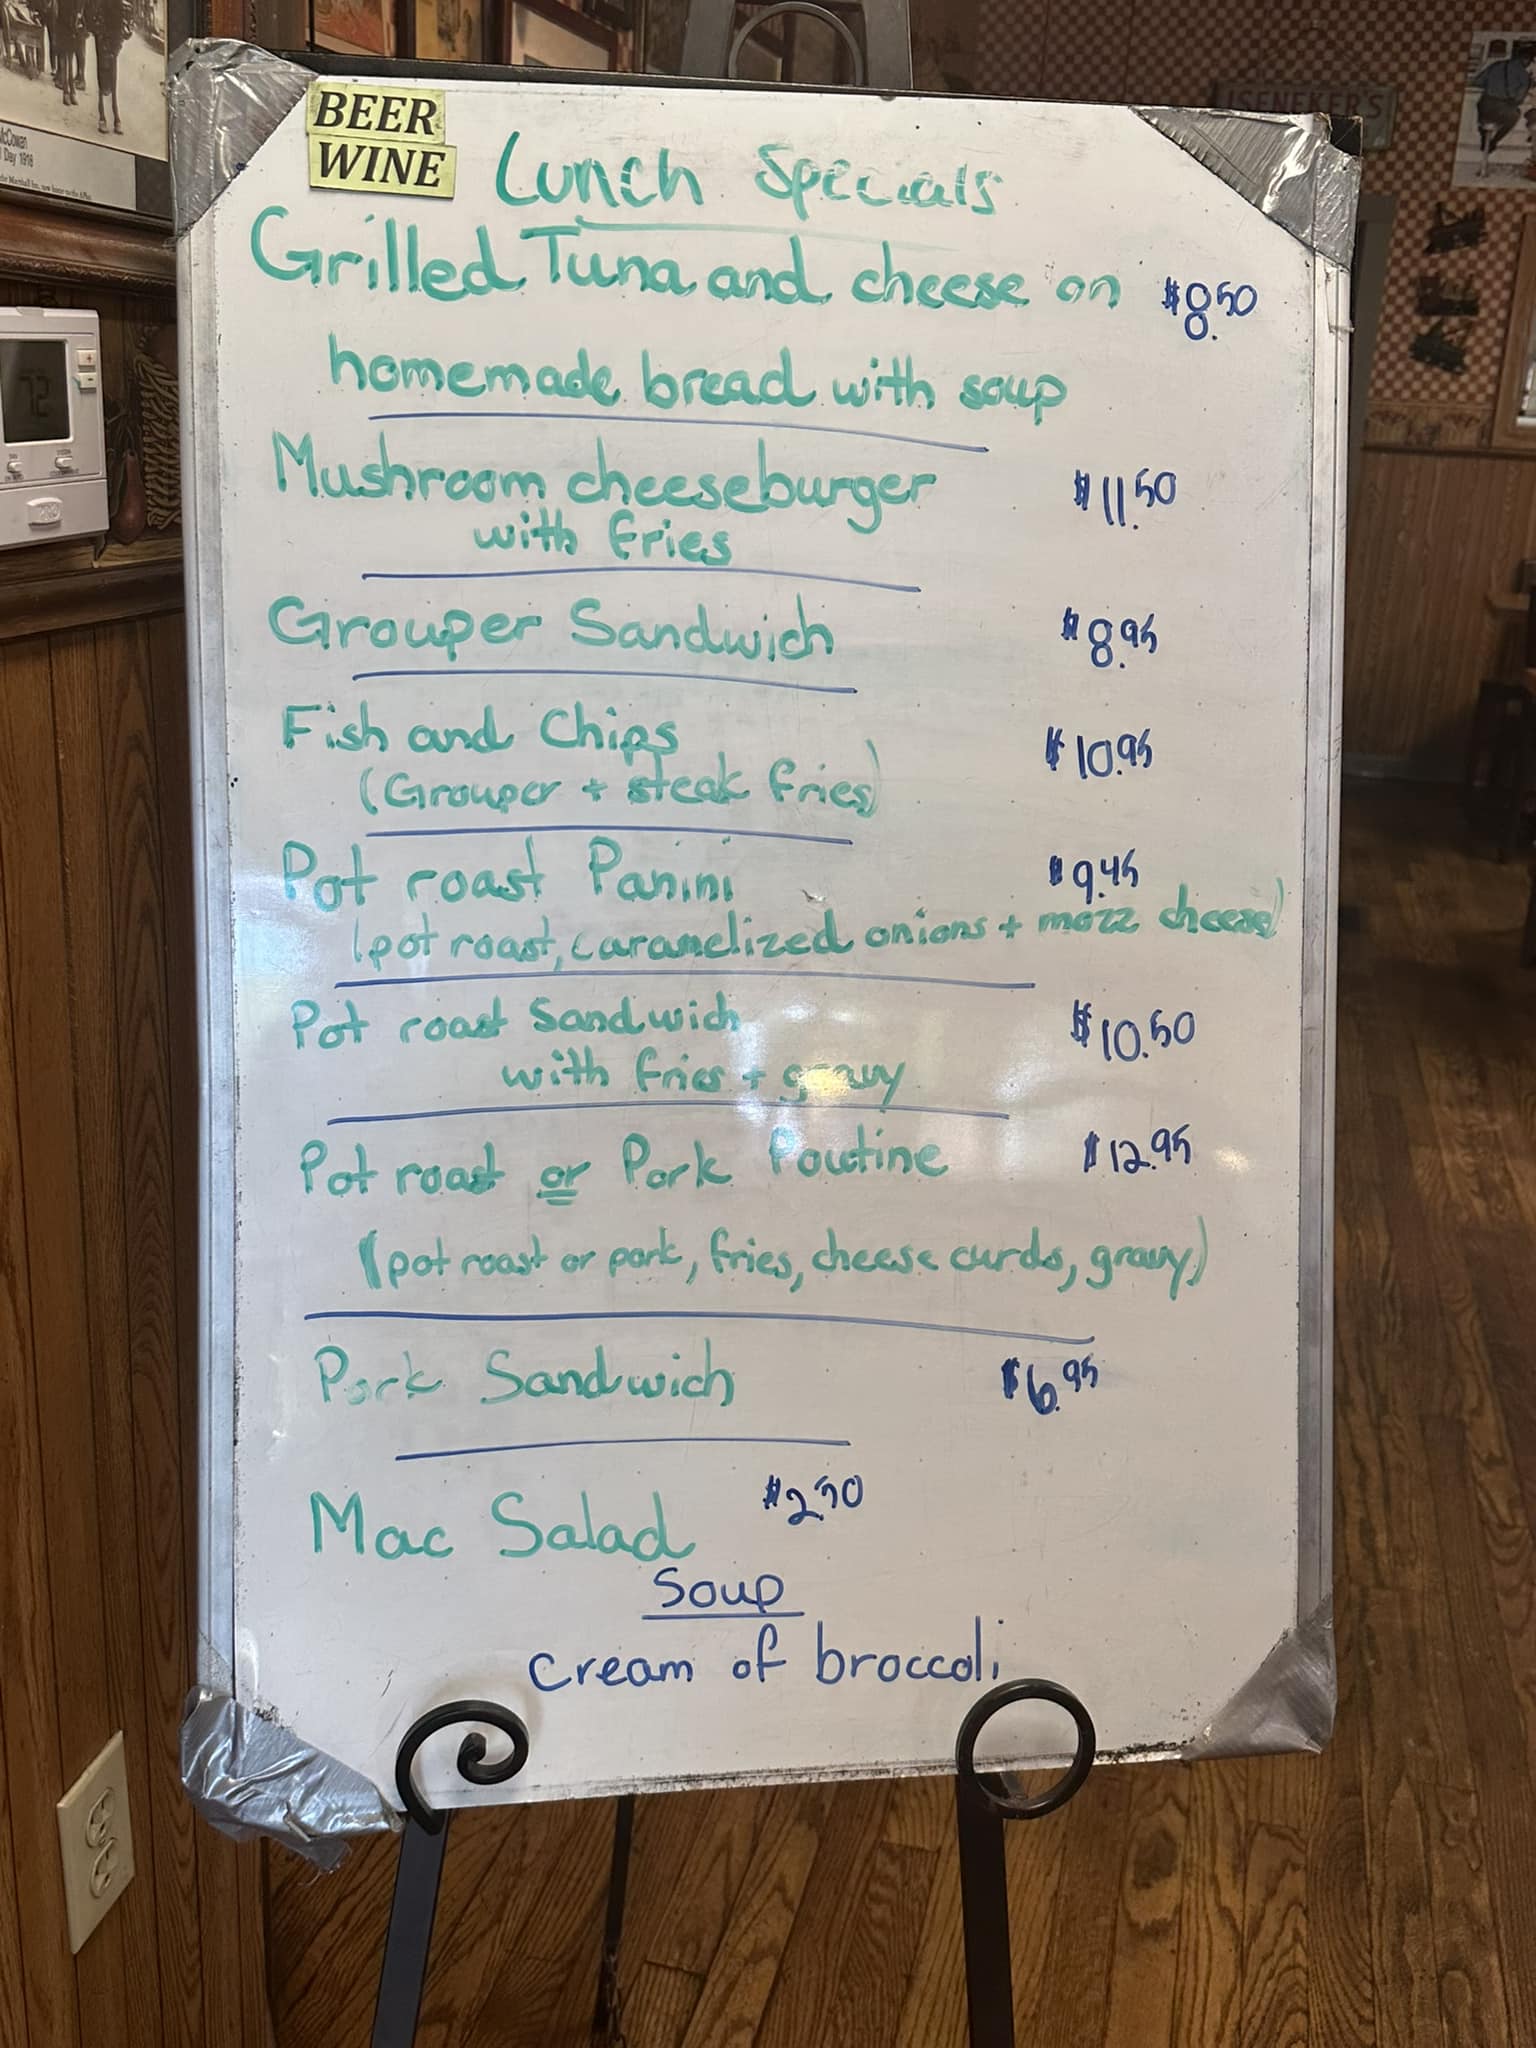 BEER
WINE
Lunch Specials
Grilled Tuna and cheese on $8.50
homemade bread with soup
Mushroom cheeseburger $11.50
with fries
Grouper Sandwich $8.95
Fish and Chips $10.95
(Grouper + steak fries)
Pot roast Panini $9.45
(pot roast, caramelized onions + mozz cheese)
Pot roast Sandwich $10.50
with fries + gravy
Pot roast or Pork Poutine $12.95
(pot roast or pork, fries, cheese curds, gravy)
Pork Sandwich $6.95
Mac Salad $2.50
Soup
cream of broccoli
ISENEKERS
McCowan
Day 1918
72